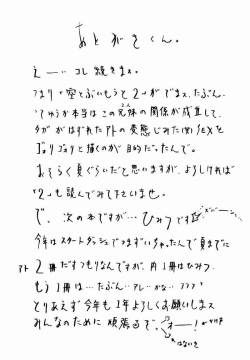 あとがきくん。
えー…コレ続きます。
つまり「空とぶいもうと2」がでます。たぶん。
つーか本当はこの兄妹の関係が成立して、
タガがはずれたアトの変態じみた(笑)SEXを
ゴリゴリと描くのが目的だったんで。
おそらく夏ぐらいだと思いますが、よろしければ
「2」も読んでみて下さいませ。
で、次の本ですが…ひみつです
今年はスタートダッシュでつまずいちゃったんで夏までに
アト2冊だすつもりなんですが、内1冊はひみつ。
もう1冊は…たぶん…アレ…かな…????
とりあえず今年も1年よろしくお願いしまス
みんなのために頑張るでっすー!
はないき